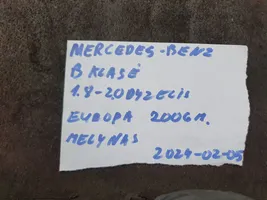 MERCEDES-BENZ
B KLASĖ
1.8-2.0DYZELIS
EUROPA 2006m.
MELYNAS
2024-02-05